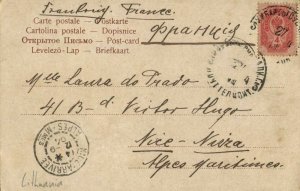 Frankreich, France.
Carte postale - Postkarte
Cartolina postale - Dopisnice
Открытое Письмо - Post-card
Levelező-Lap - Briefkaart
Франція
Mlle Laura do Prado
41 Bd Victor Hugo
Nice - Nizza
Alpes Maritimes.
NICE ARRIVÉE
ALPES MMES
Lithuania